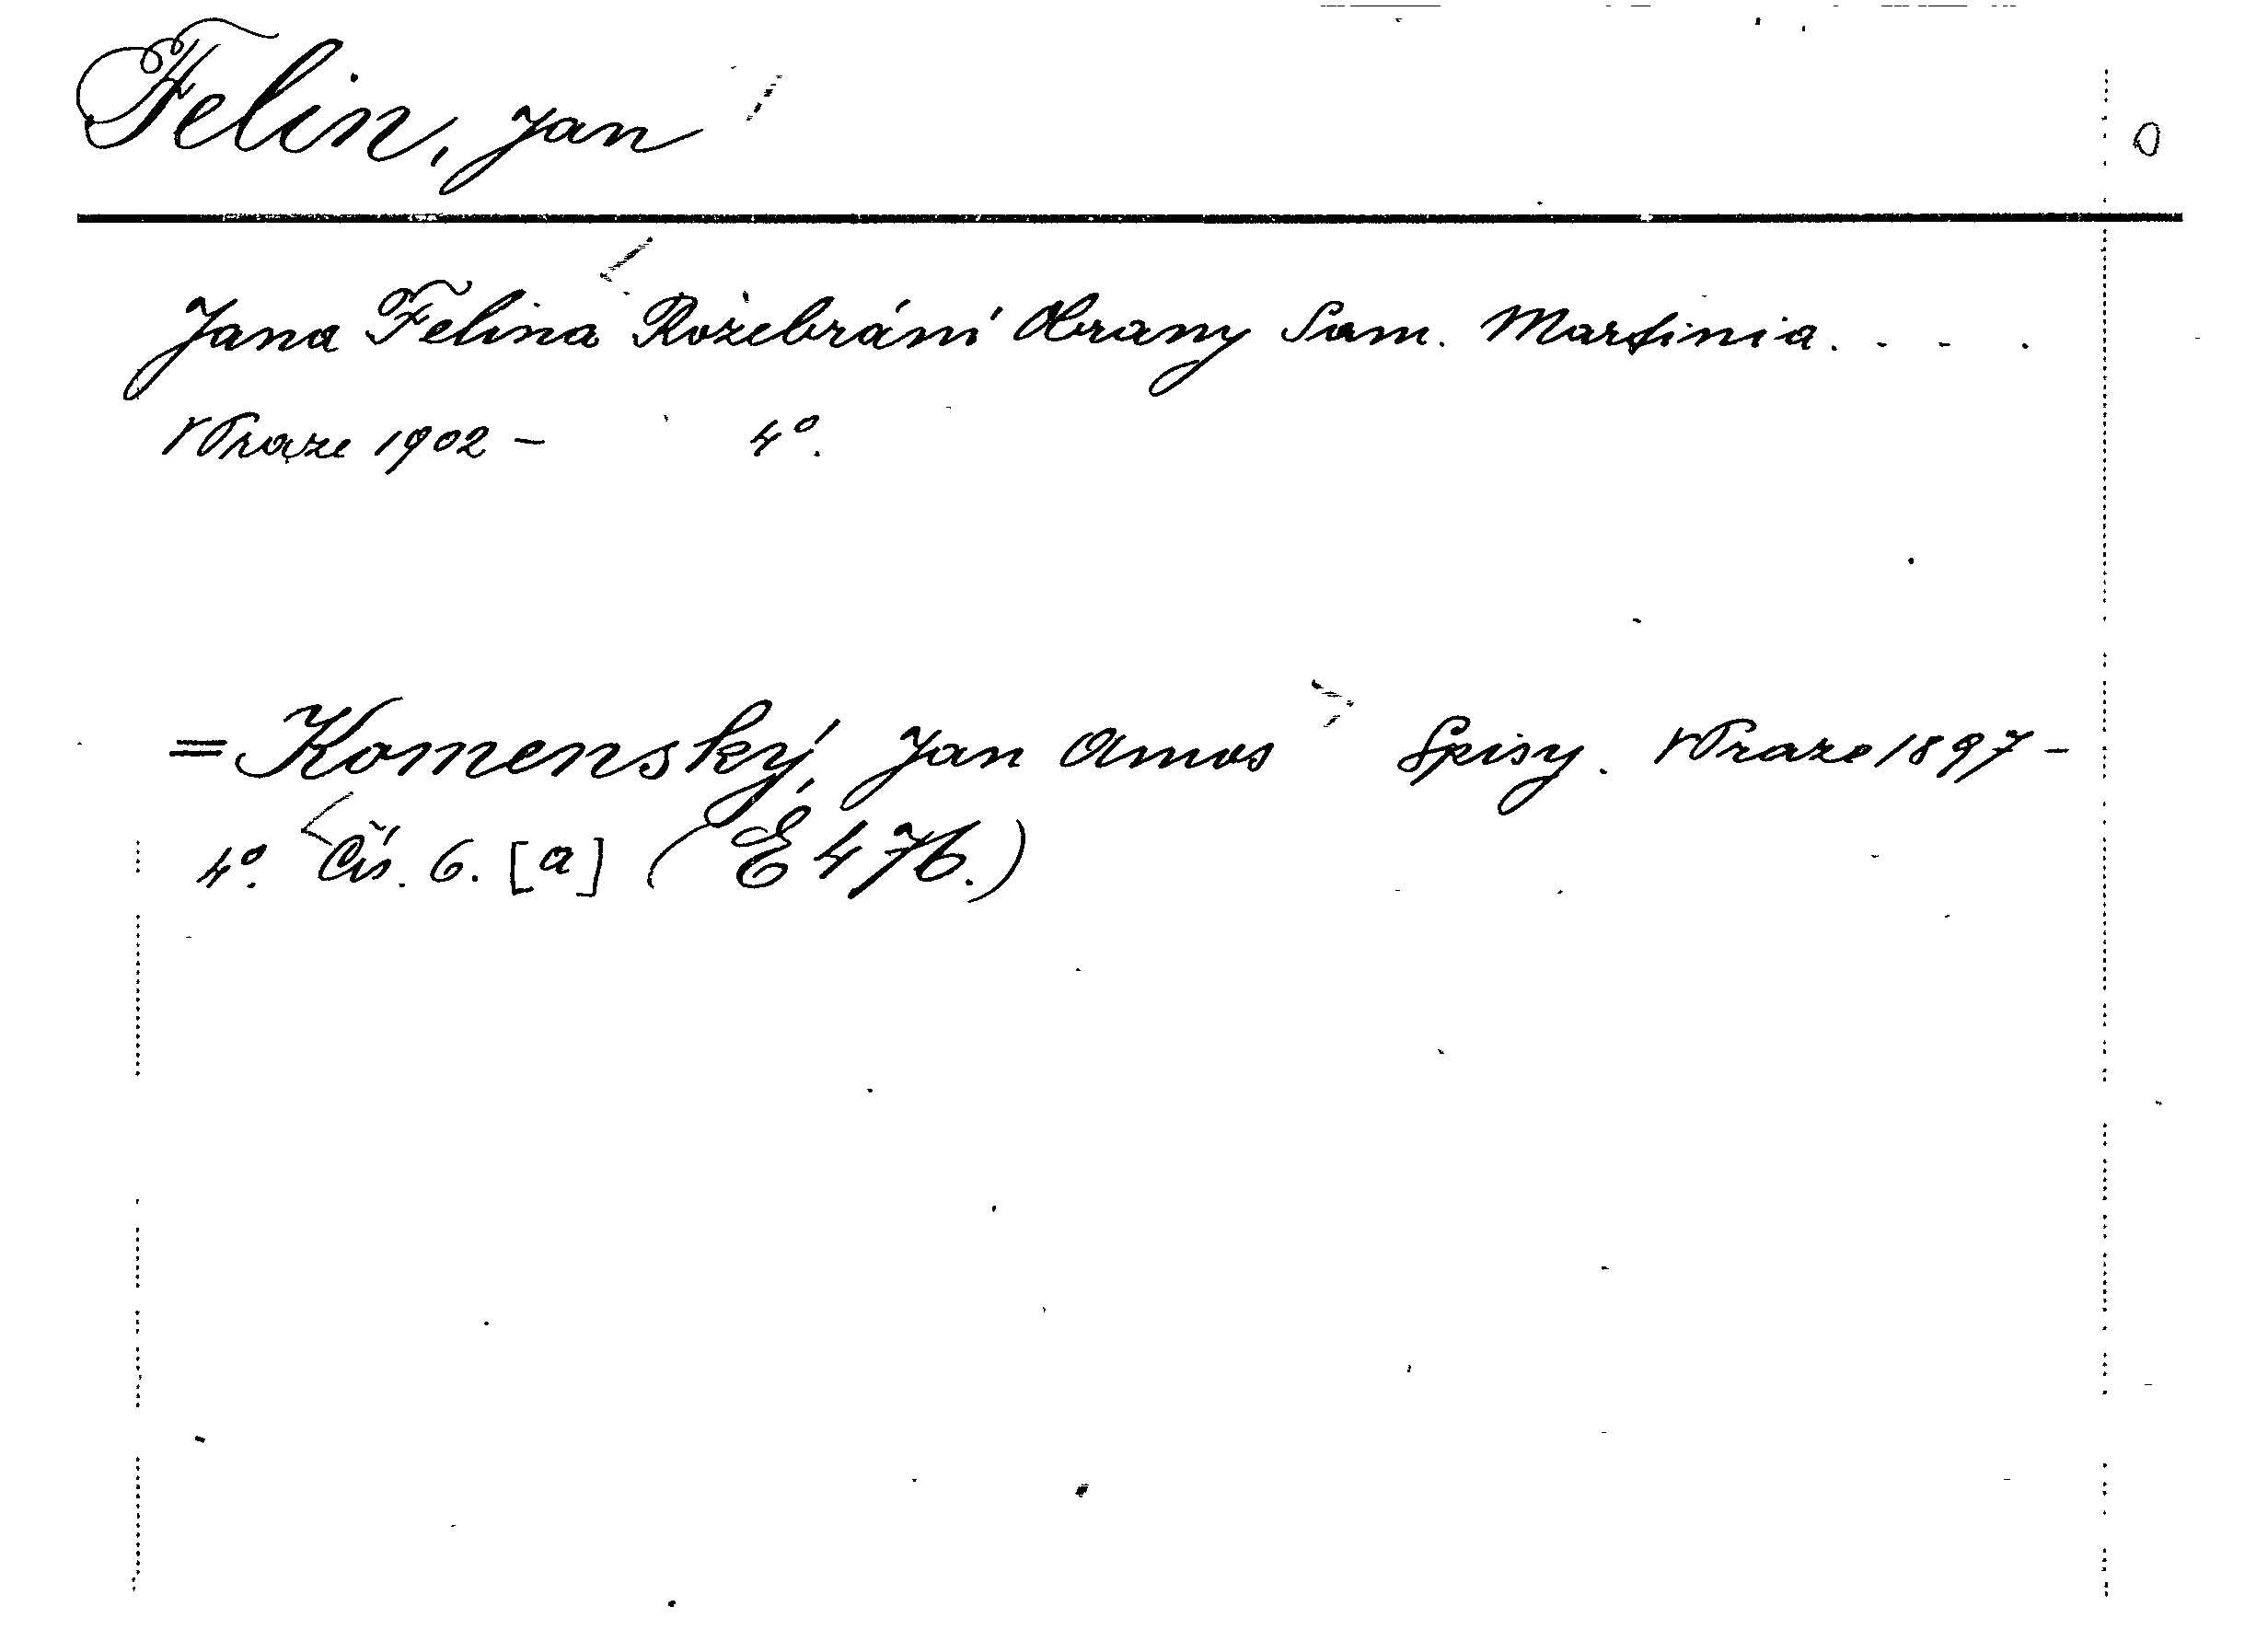 Felin, Jan
0
Jana Felina Rožebrání Obrany Sam. Martinia. . . .
V Praze 1902 - 4°.
= Komenský, Jan Amos Spisy. V Praze 1897 -
4°. Čís. 6. [a] (E 476.)